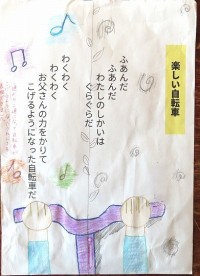 楽しい自転車
ふあんだ
ふあんだ
わたしのしかいは
ぐらぐらだ
わくわく
わくわく
お父さんの力をかりて
こげるようになった自転車だ